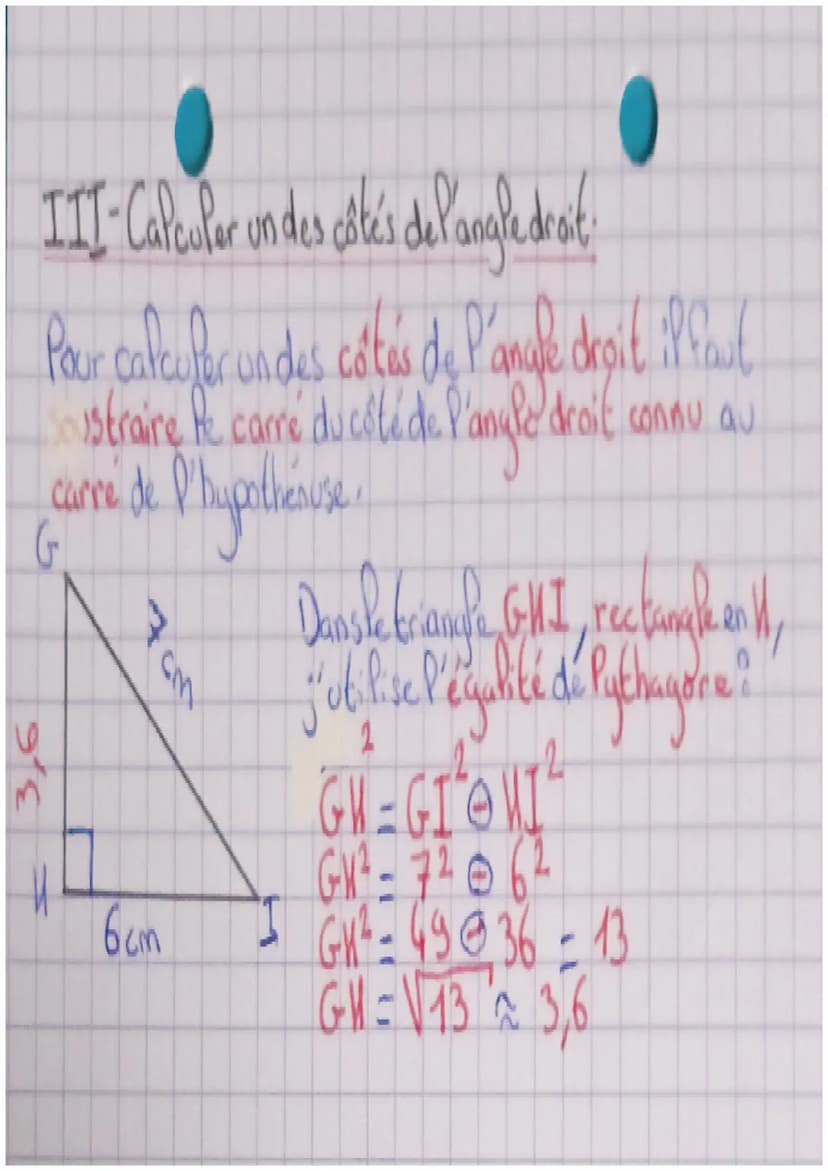 III-Calculer un des côtés de l'angle droit.
Pour calculer un des côtés de l'angle droit il faut
soustraire le carré du côté de l'angle droit connu au
carré de l'hypothénuse.
G
7 cm
3,6
H
6cm
I
Dans le triangle GHI, rectangle en H,
j'utilise l'égalité de Pythagore:
GH² = GI² - HI²
GH² = 7² - 6²
GH² = 49 - 36 = 13
GH = √13 ≈ 3,6